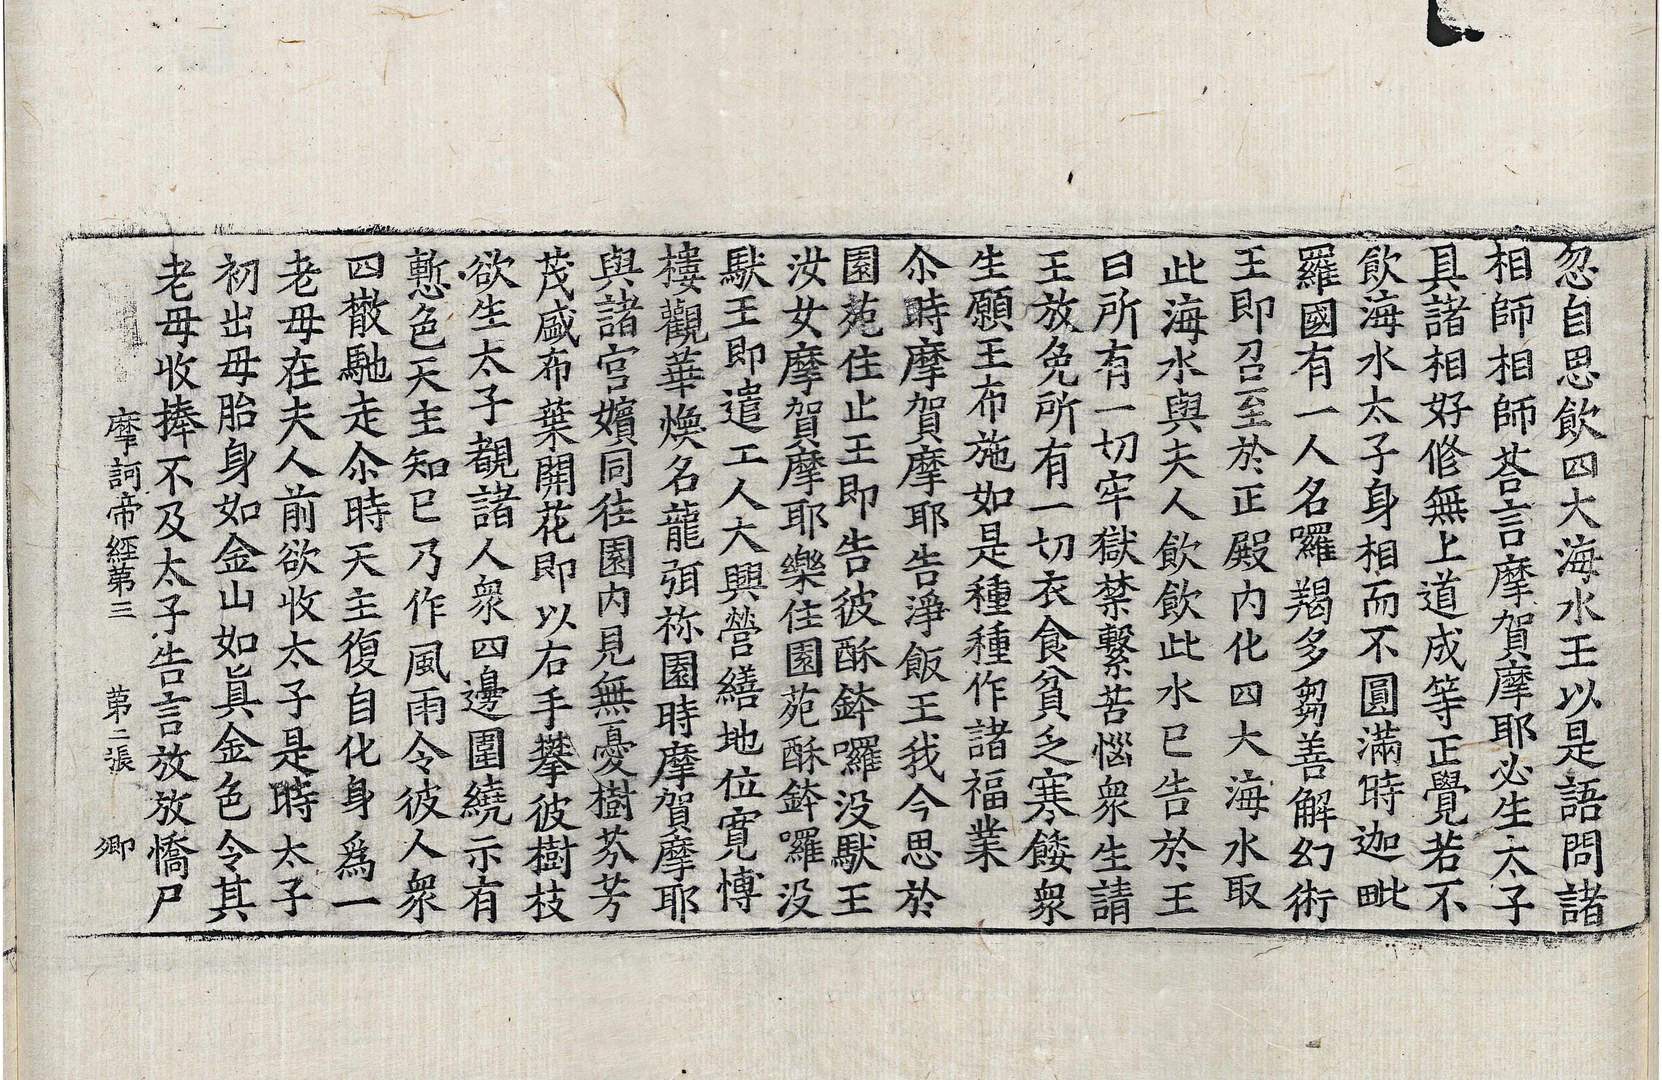 忽自思飲四大海水王以是語問諸
相師相師荅言摩賀摩耶必生太子
具諸相好修無上道成等正覺若不
飲海水太子身相而不圓滿時迦毗
羅國有一人名囉羯多芻善解幻術
王即召至於正殿內化四大海水取
此海水與夫人飲飲此水已告於王
曰所有一切牢獄禁繫苦惱衆生請
王放免所有一切衣食貧乏寒餧衆
生願王布施如是種種作諸福業
尒時摩賀摩耶告淨飯王我今思於
園苑住止王即告彼酥鉢囉没馱王
汝女摩賀摩耶樂住園苑酥鉢囉没
馱王即遣工人大興營繕地位寬慱
樓觀華煥名龍弭祢園時摩賀摩耶
與諸宮嬪同往園内見無憂樹芬芳
茂盛布葉開花即以右手攀彼樹枝
欲生太子覩諸人衆四邊圍繞示有
慙色天主知已乃作風雨令彼人衆
四散馳走尒時天主復自化身爲一
老母在夫人前欲收太子是時太子
初出母胎身如金山如眞金色令其
老母收捧不及太子告言放放憍尸
摩訶帝經第三　第二張　卿